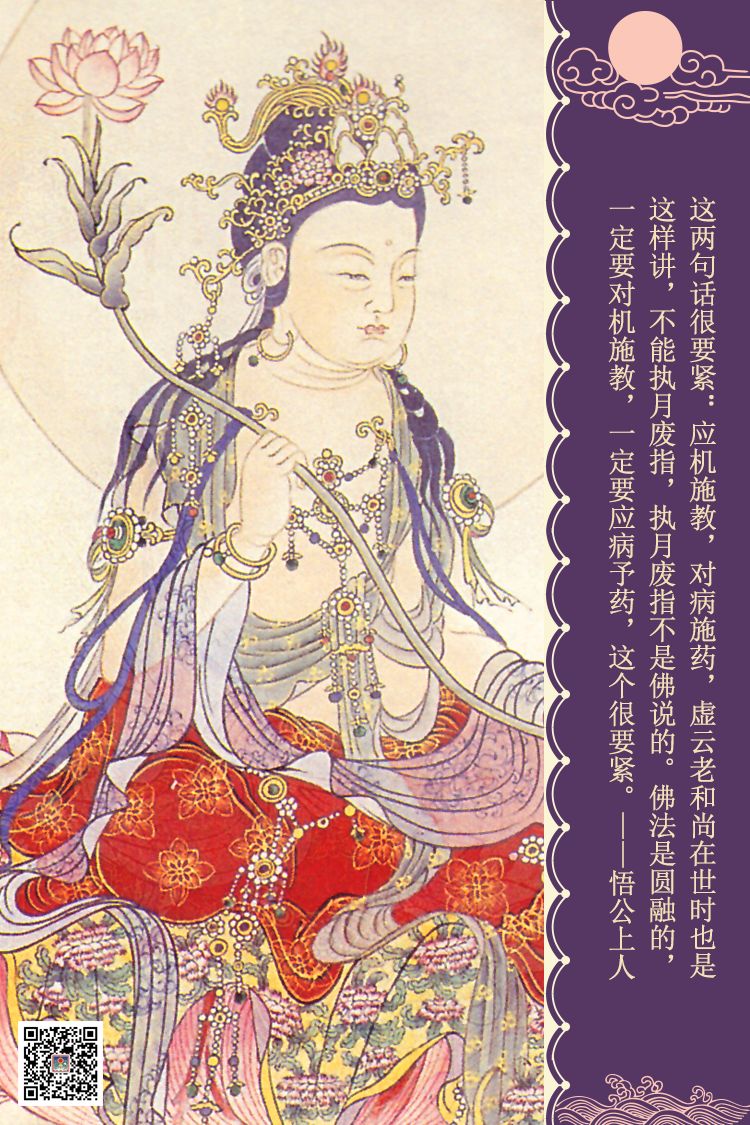 这两句话很要紧：应机施教，对病施药，虚云老和尚在世时也是
这样讲，不能执月废指，执月废指不是佛说的。佛法是圆融的，
一定要对机施教，一定要应病予药，这个很要紧。——悟公上人